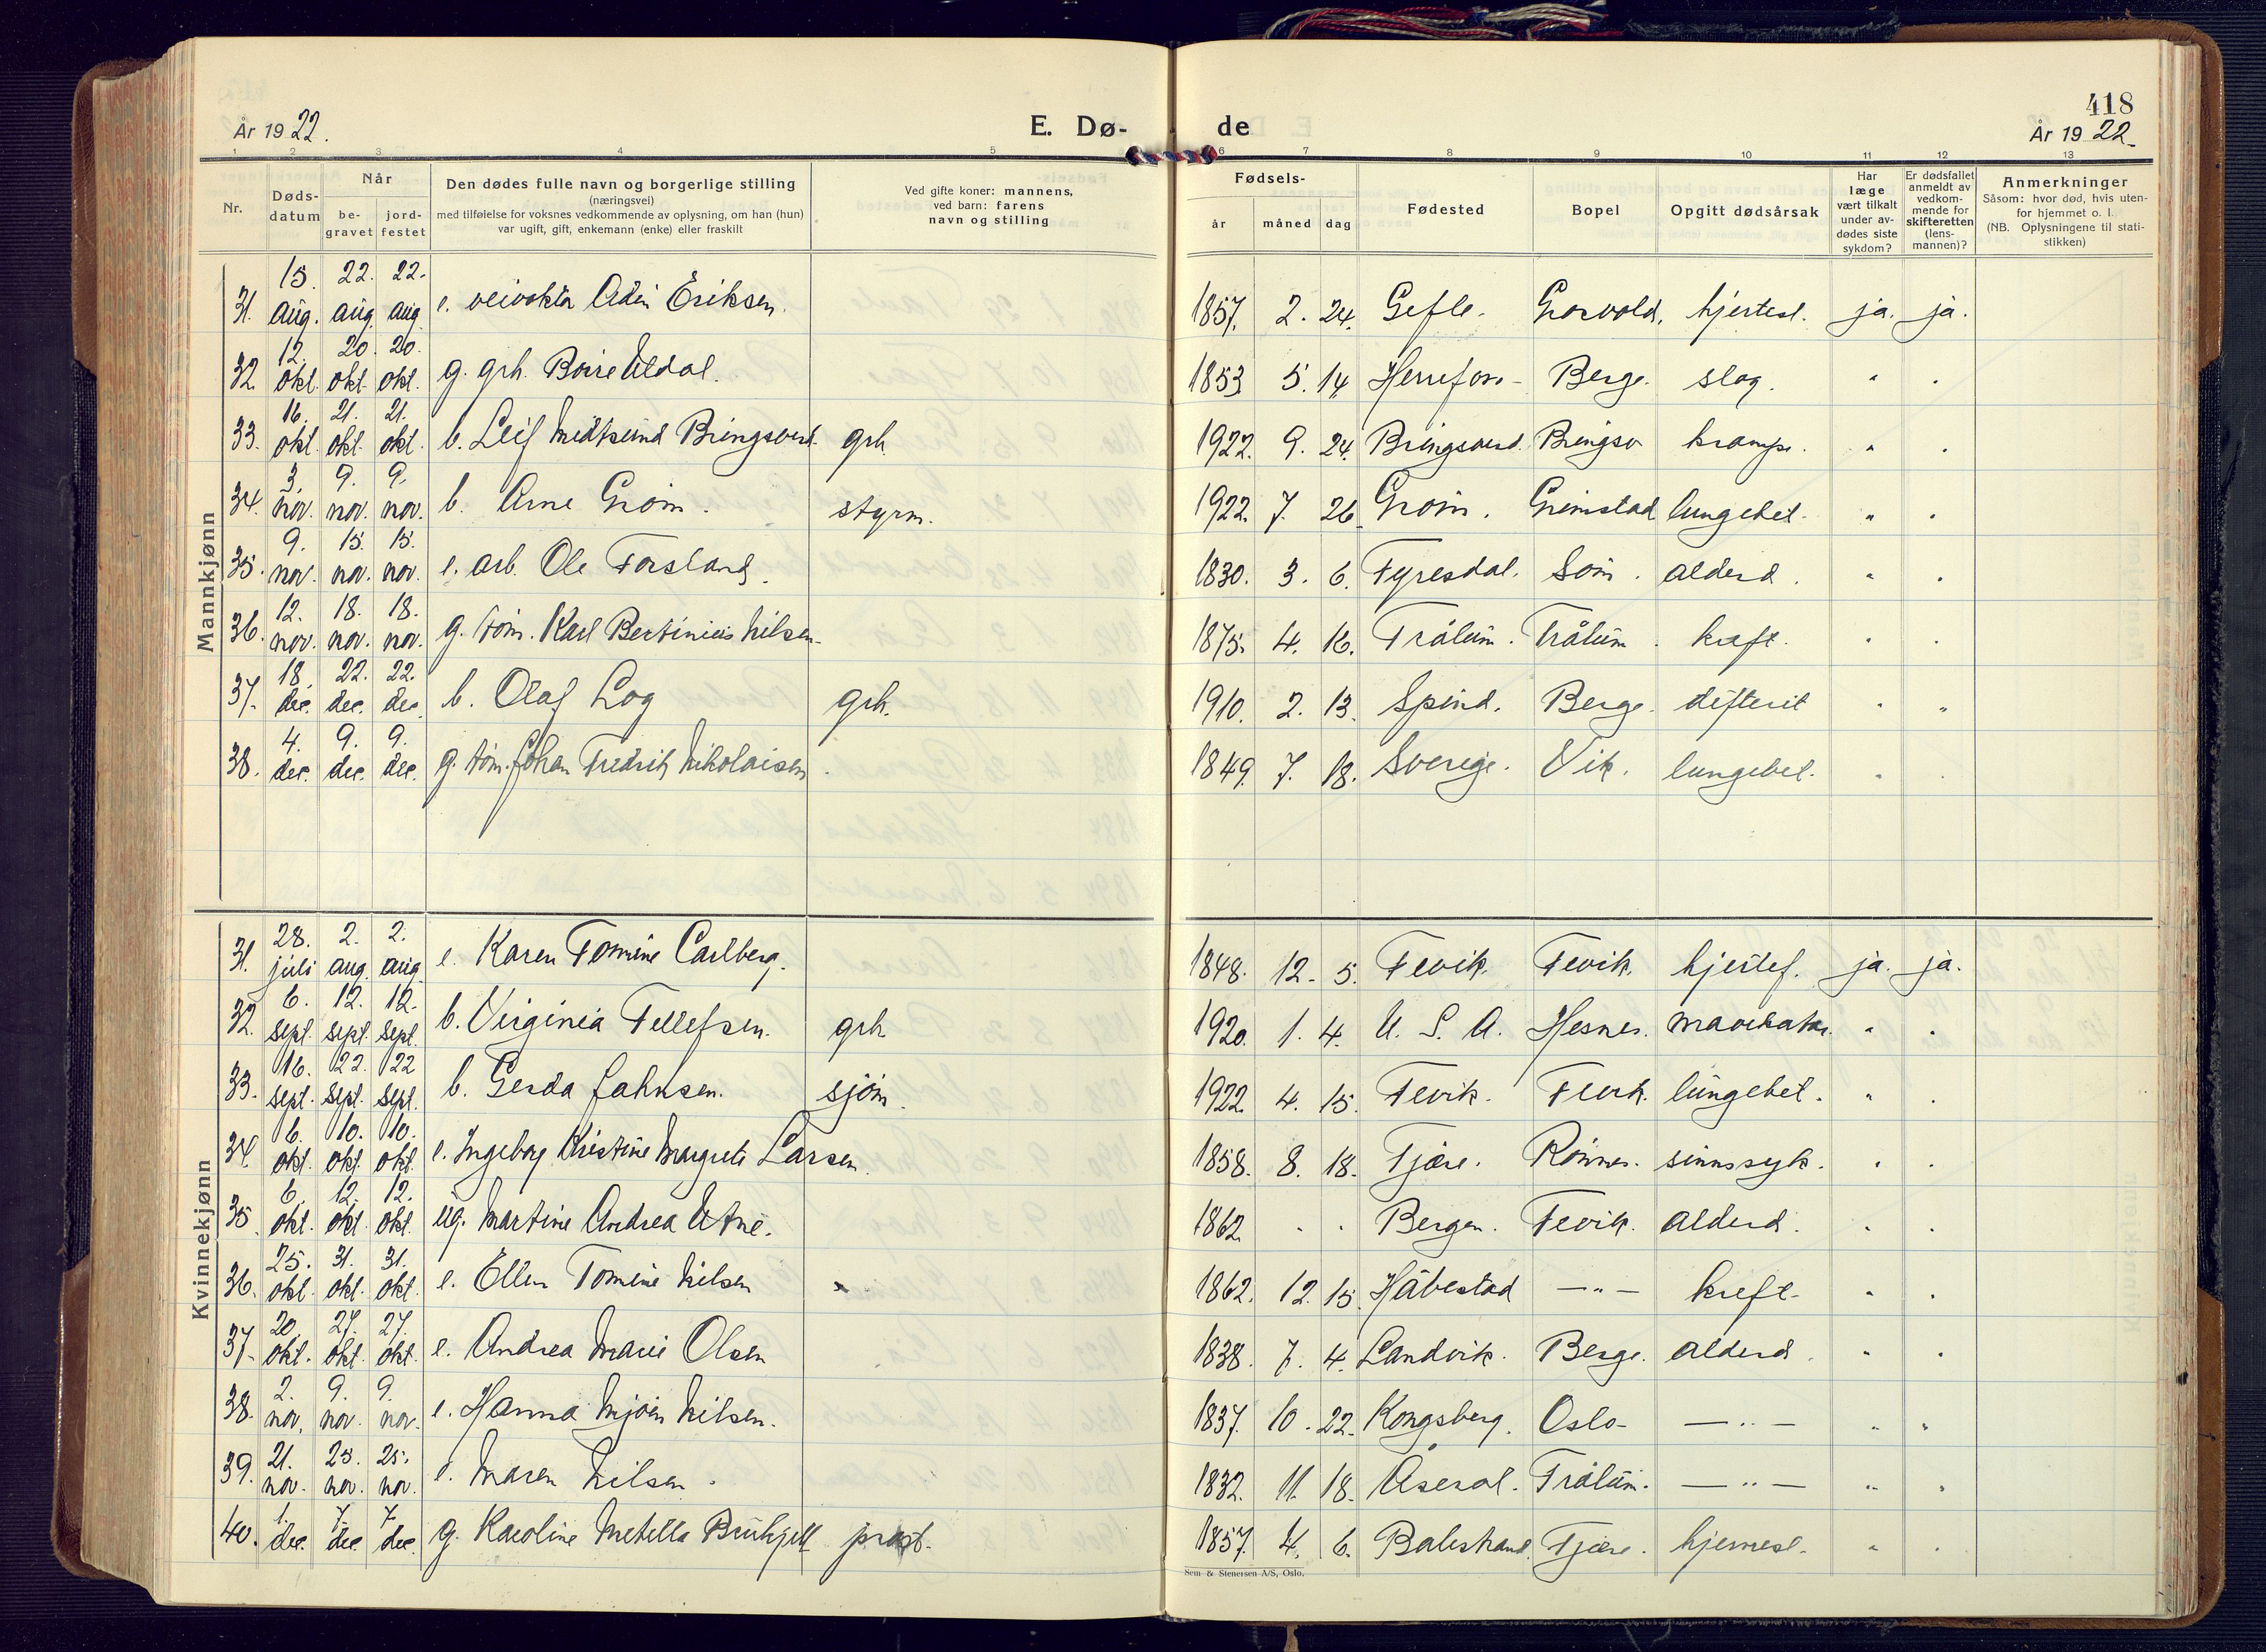 418
År 19 22.
E. Dø-
de
År 19 22
1 2 3 4 5 6 7 8 9 10 11 12 13
Nr.
Døds-
datum
Når
be-
gravet
jord-
festet
Den dødes fulle navn og borgerlige stilling
(næringsvei)
med tilføielse for voksnes vedkommende av oplysning, om han (hun)
var ugift, gift, enkemann (enke) eller fraskilt
Ved gifte koner: mannens,
ved barn: farens
navn og stilling
Fødsels-
år måned dag
Fødested
Bopel
Opgitt dødsårsak
Har
læge
vært tilkalt
under av-
dødes siste
sykdom?
Er dødsfallet
anmeldt av
vedkom-
mende for
skifteretten
(lens-
mannen)?
Anmerkninger
Såsom: hvor død, hvis uten-
for hjemmet o. l.
(NB. Oplysningene til stati-
stikken)
Mannkjønn
31. 15. aug. 22. aug. 22. aug. e. veivokter Adin Eriksen. 1857. 2. 24. Gefle. Grosvold. hjertesl. ja. ja.
32. 12. okt. 20. okt. 20. okt. g. grb. Børre Uldal. 1853 5. 14. Herrefoss - Berge. slag. " "
33. 16. okt. 21. okt. 21. okt. b. Leif Midtsund Bringsverd. grb. 1922. 9. 24. Bringsverd. Bringsv krampe. " "
34. 3. nov. 9. nov. 9. nov. b. Arne Grøm. styrm. 1922. 7. 26. Grøm. Grimstad lungebet. " "
35. 9. nov. 15. nov. 15. nov. e. arb. Ole Forsland. 1830. 3. 6. Fyresdal. Søm. alderd. " "
36. 12. nov. 18. nov. 18. nov. g. tøm. Karl Bertinius Nilsen. 1875. 4. 16. Trålum. Trålum. kreft. " "
37. 18. dec. 22. dec. 22. dec. b. Olaf Log grb. 1910. 2. 13. Spind. Berge. difterit " "
38. 4. dec. 9. dec. 9. dec. g. tøm. Johan Fredrik Nikolaisen. 1849. 7. 18. Sverige. Vik. lungebet. " "
Kvinnekjønn
31. 28. juli 2. aug. 2. aug. e. Karen Tomine Carlberg. 1848. 12. 5. Fevik. Fevik. hjertef. ja. ja.
32. 6. sept. 12. sept. 12. sept. b. Virginia Tellefsen. grb 1920. 1. 4. U. S. A. Hesnes. mavekatar. " "
33. 16. sept. 22. sept. 22 sept. b. Gerda Jahnsen. sjøm. 1922. 4. 15. Fevik. Fevik. lungebet. " "
34. 6. okt. 10. okt. 10. okt. e. Ingeborg Kristine Margrete Larsen. 1858. 8. 18. Fjære. Rønnes. sinnssyk. " "
35. 6. okt. 12. okt. 12. okt. ug. Martine Andrea Utne. 1862. " " Bergen. Fevik. alderd. " "
36. 25. okt. 31. okt. 31. okt. e. Ellen Tomine Nilsen 1862. 12. 15. Håbestad — " — kreft. " "
37. 20. okt. 27. okt. 27. okt. e. Andrea Marie Olsen 1838. 7. 4. Landvik. Berge. alderd. " "
38. 2. nov. 9. nov. 9. nov. e. Hanna Mjøen Nilsen. 1837. 10. 22. Kongsberg. Oslo — " — " "
39. 21. nov. 25. nov. 25. nov. e. Maren Nilsen. 1832. 11. 18. Åseral. Trålum. — " — " "
40. 1. dec. 7. dec. 7 dec. g. Karoline Metella Bruhjell prost. 1857. 4. 6. Balestrand. Fjære. hjernesl. " "
Sem & Stenersen A/S, Oslo.